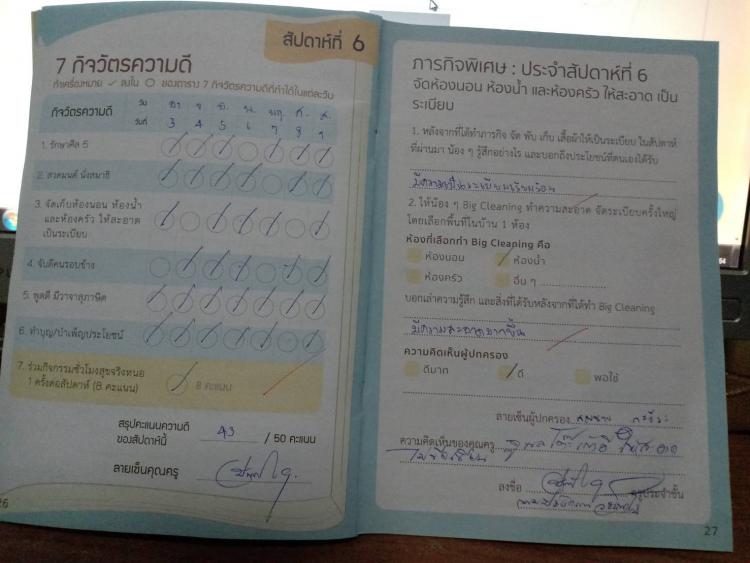 สัปดาห์ที่ 6
7 กิจวัตรความดี
ทำเครื่องหมาย ✓ ลงใน ○ ของตาราง 7 กิจวัตรความดีที่ทำได้ในแต่ละวัน
กิจวัตรความดี วัน อา จ อ. พ. พฤ ศ. ส.
วันที่ 3 4 5 6 7 8 9
1. รักษาศีล 5
2. สวดมนต์ นั่งสมาธิ
3. จัดเก็บห้องนอน ห้องน้ำ
และห้องครัว ให้สะอาด
เป็นระเบียบ
4. จับดีคนรอบข้าง
5. พูดดี มีวาจาสุภาษิต
6. ทำบุญ/บำเพ็ญประโยชน์
7. ร่วมกิจกรรมชั่วโมงสุขจริงหนอ
1 ครั้งต่อสัปดาห์ (8 คะแนน) 8 คะแนน
สรุปคะแนนความดี
ของสัปดาห์นี้ 43 / 50 คะแนน
ลายเซ็นคุณครู
26
ภารกิจพิเศษ : ประจำสัปดาห์ที่ 6
จัดห้องนอน ห้องน้ำ และห้องครัว ให้สะอาด เป็น
ระเบียบ
1. หลังจากที่ได้ทำภารกิจ จัด พับ เก็บ เสื้อผ้าให้เป็นระเบียบ ในสัปดาห์
ที่ผ่านมา น้อง ๆ รู้สึกอย่างไร และบอกถึงประโยชน์ที่ตนเองได้รับ
มีความเป็นระเบียบเรียบร้อย
2. ให้น้อง ๆ Big Cleaning ทำความสะอาด จัดระเบียบครั้งใหญ่
โดยเลือกพื้นที่ในบ้าน 1 ห้อง
ห้องที่เลือกทำ Big Cleaning คือ
ห้องนอน ✓ ห้องน้ำ
ห้องครัว อื่น ๆ
บอกเล่าความรู้สึก และสิ่งที่ได้รับหลังจากที่ได้ทำ Big Cleaning
มีความสะอาดมากขึ้น
ความคิดเห็นผู้ปกครอง
ดีมาก ✓ ดี พอใช้
ลายเซ็นผู้ปกครอง
ความคิดเห็นของคุณครู
ลงชื่อ ครูประจำชั้น
27